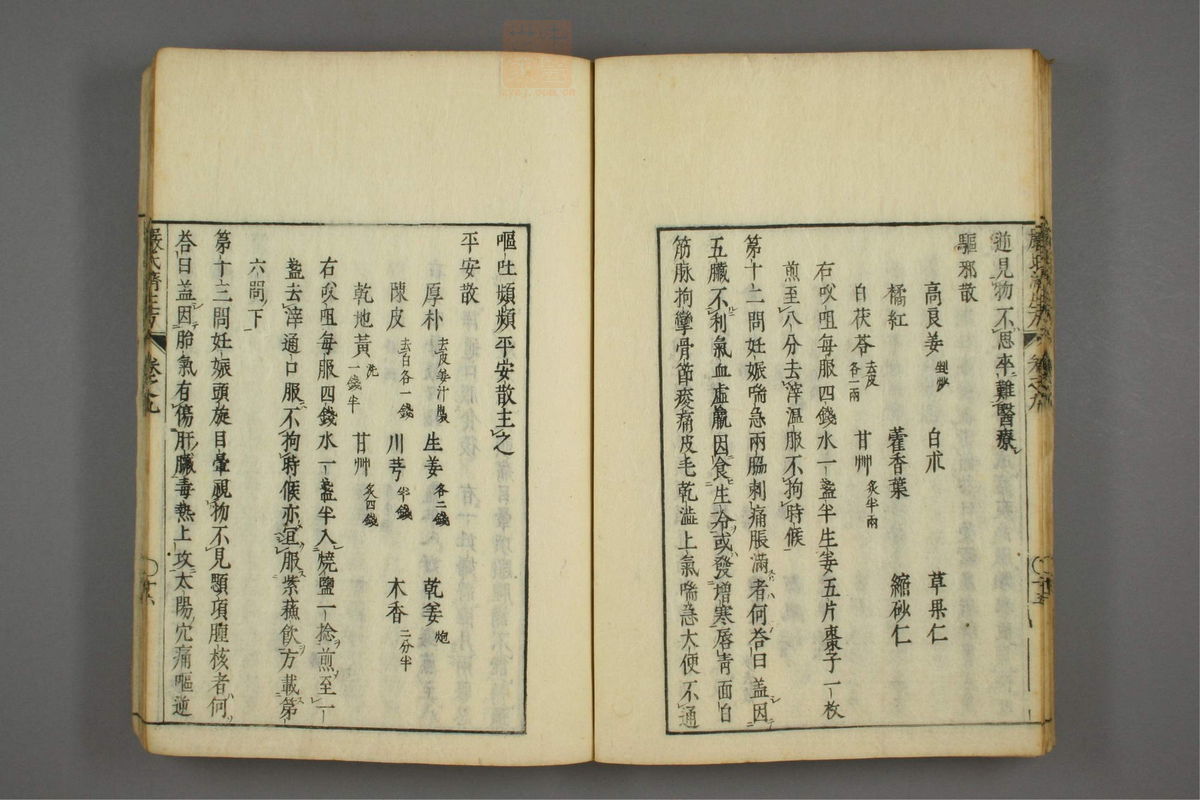 逆見物不思卒難醫療
驅邪散
高良姜剉炒 白朮 草果仁
橘紅 藿香葉 縮砂仁
白茯苓去皮各一兩 甘艸炙半兩
右㕮咀每服四錢水一盞半生姜五片棗子一枚
煎至八分去滓溫服不拘時候
第十二問妊娠喘急兩脇刺痛脹滿者何荅曰盖因
五臟不利氣血虛羸因食生冷或發增寒唇青面白
筋脉拘攣骨節痠痛皮毛乾澁上氣喘急大便不通
嘔吐頻頻平安散主之
平安散
厚朴去皮姜汁製 生姜各二錢 乾姜炮
陳皮去白各一錢 川芎半錢 木香二分半
乾地黃洗一錢半 甘艸炙四錢
右㕮咀每服四錢水一盞半入燒鹽一捻煎至一
盞去滓通口服不拘時候亦宜服紫蘓飲方載第
六問下
第十三問妊娠頭旋目暈視物不見顋項腫核者何
荅曰盖因胎氣有傷肝臟毒熱上攻太陽穴痛嘔逆
嚴氏濟生方 卷之九